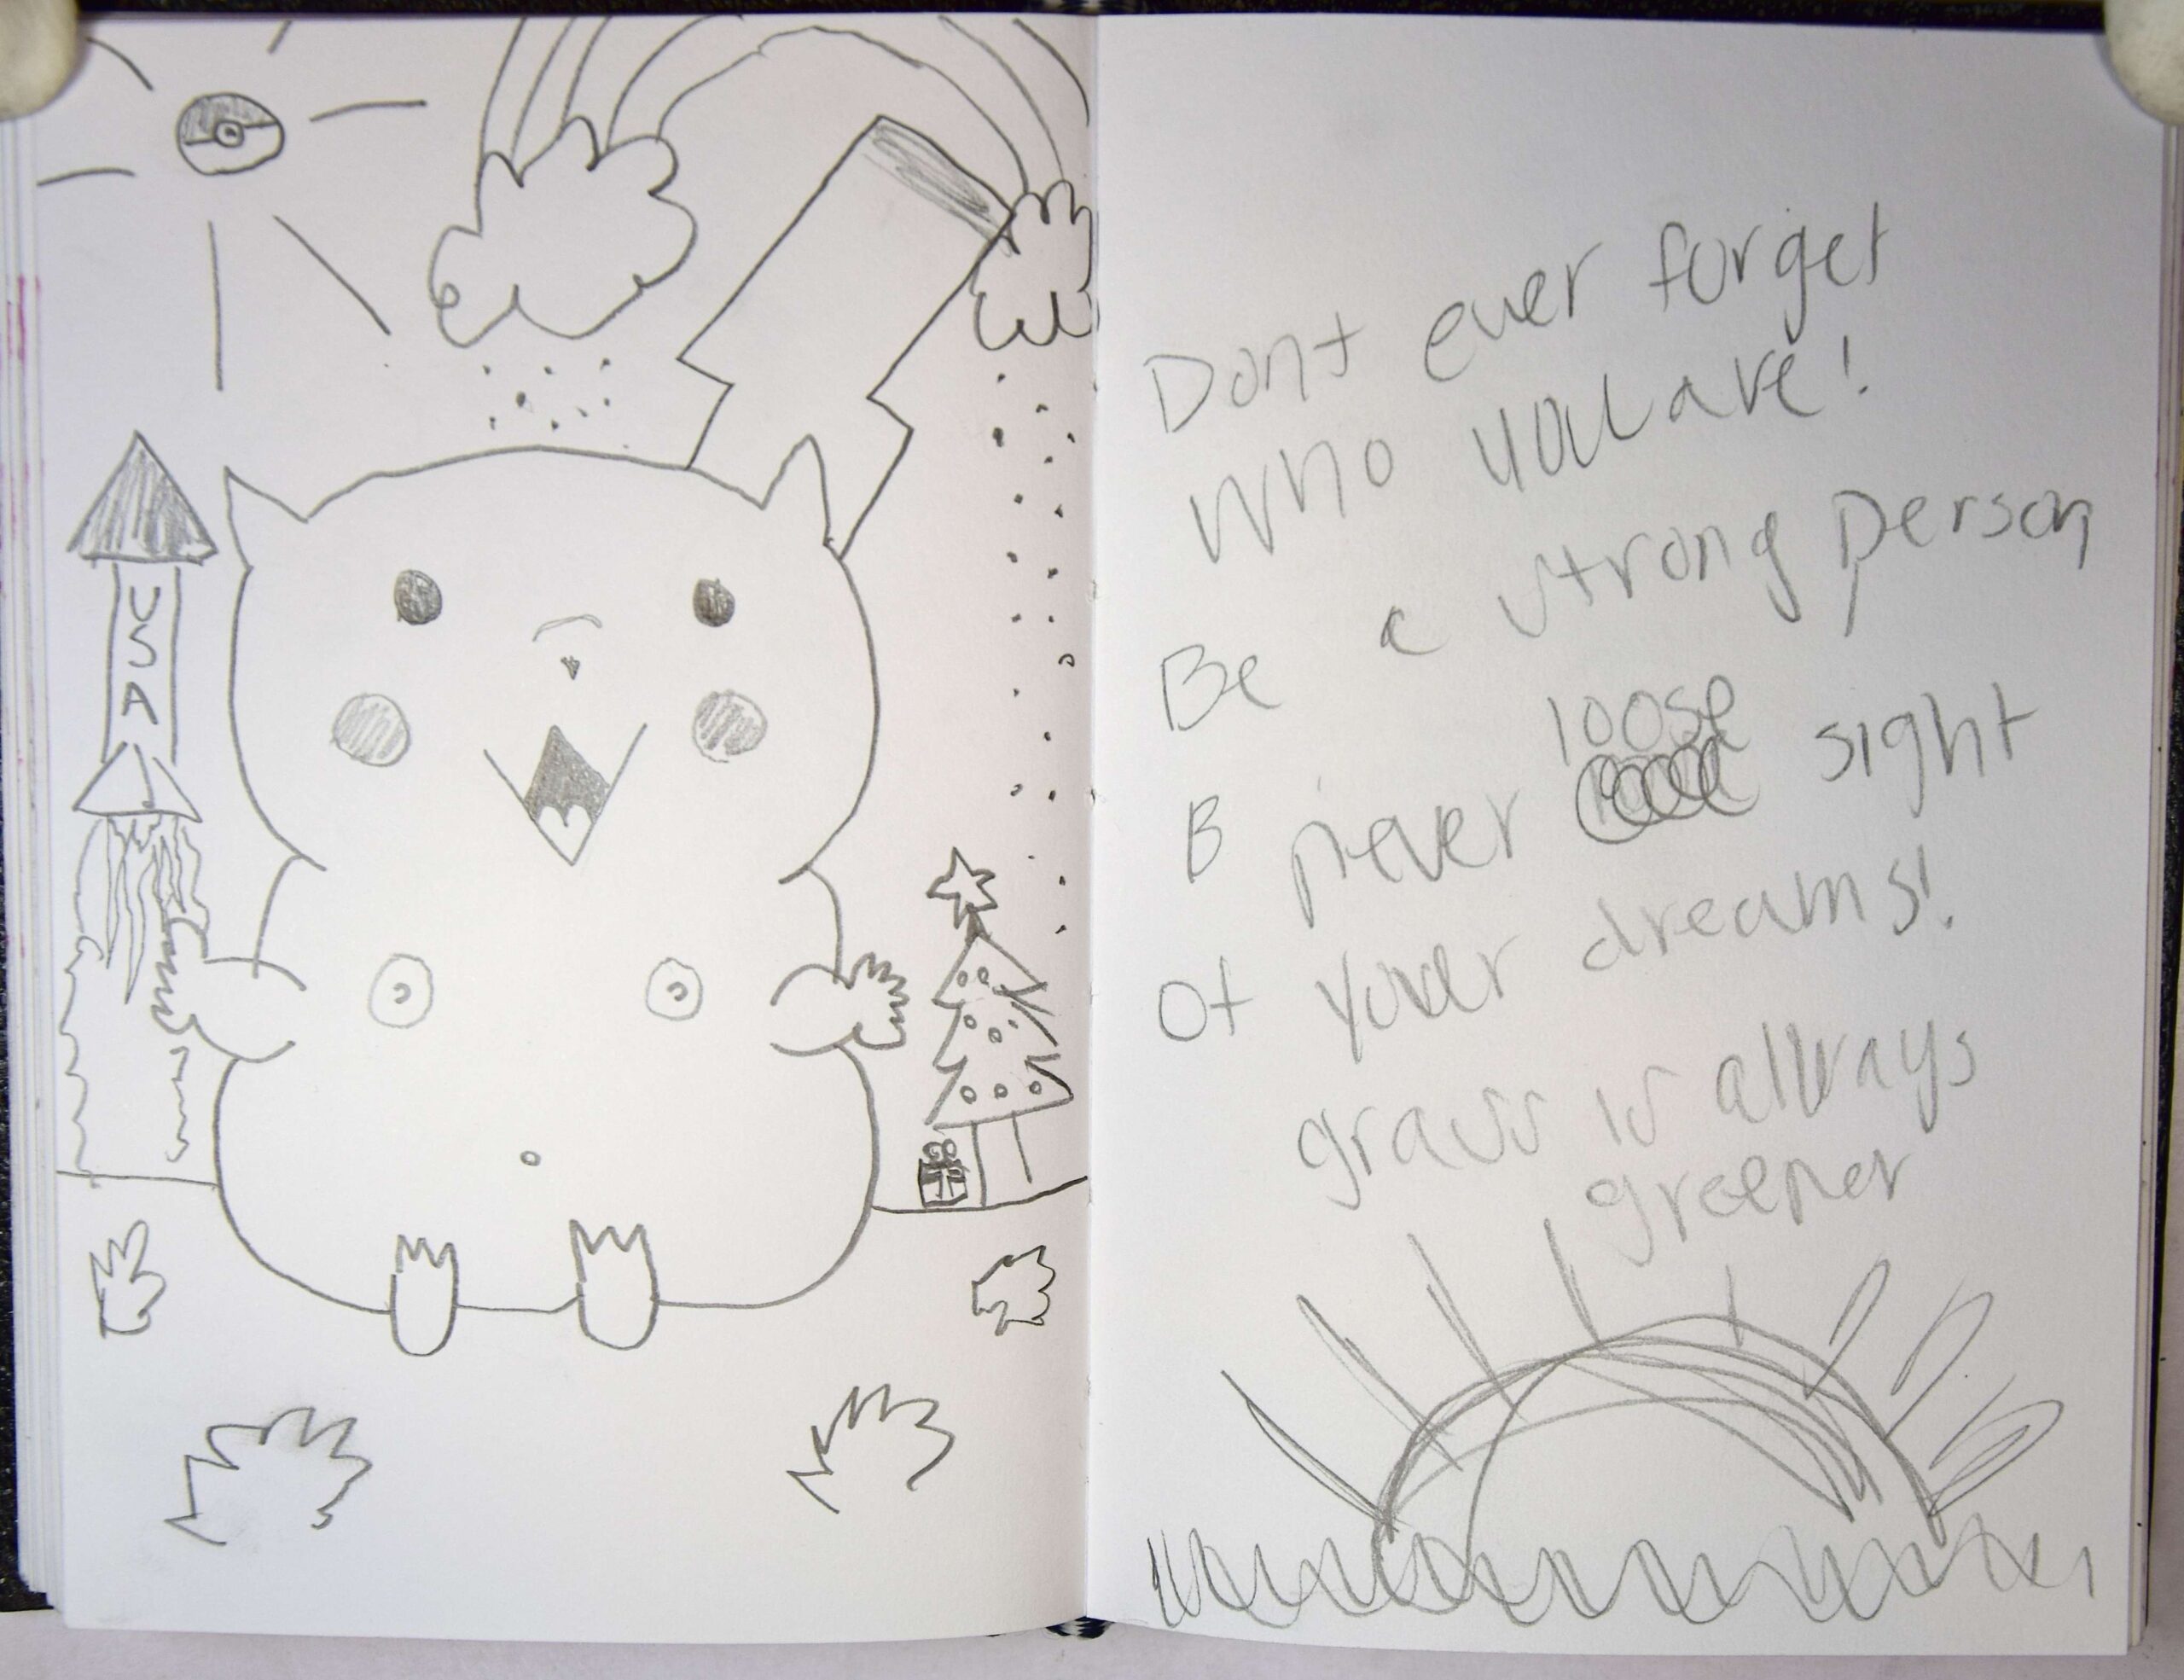 USA
Dont ever forget
who you are!
Be a strong person
B never loose sight
of yower dreams!
grass is allways
greener